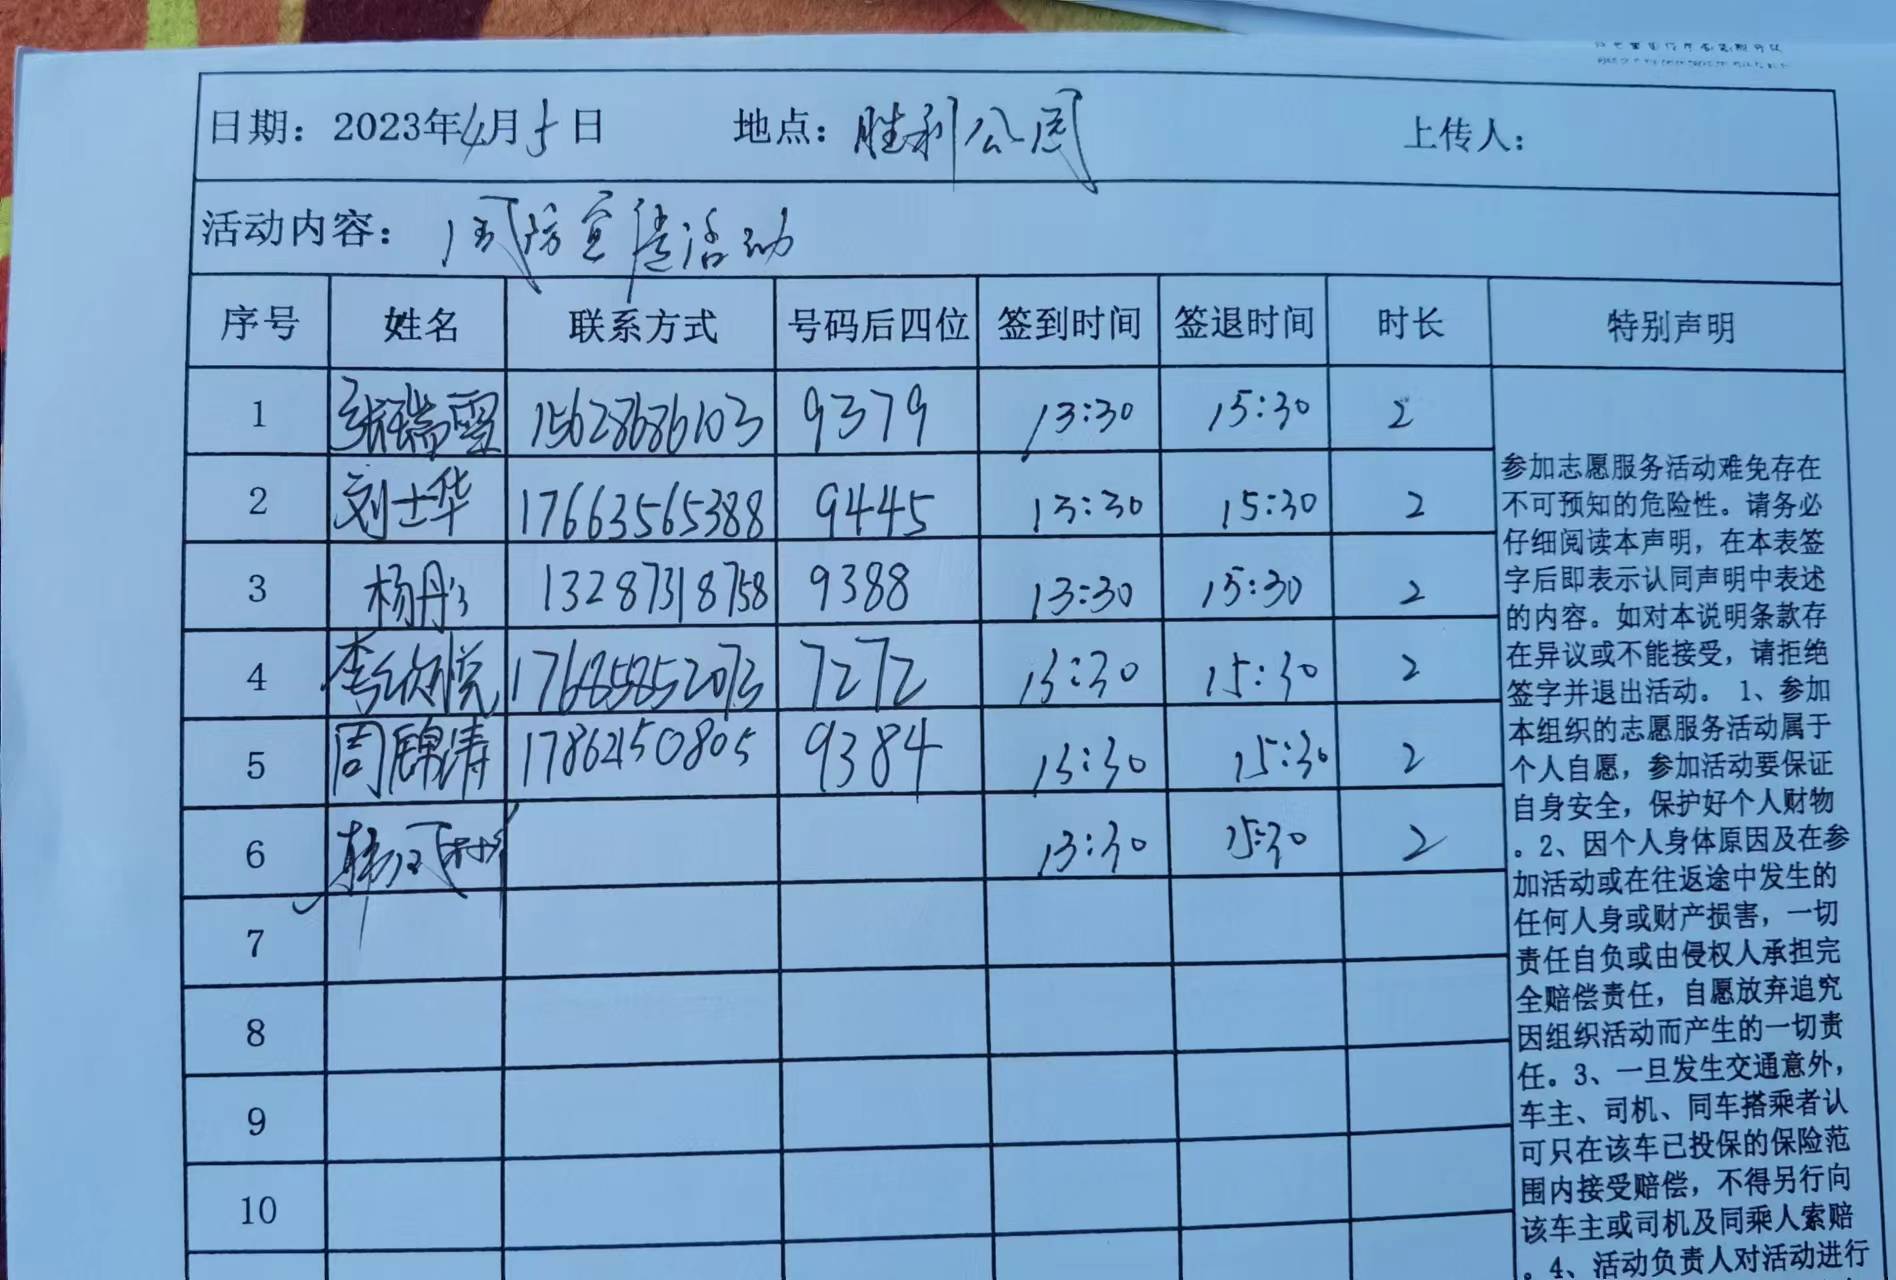 日期：2023年4月5日 地点：胜利公园 上传人：
活动内容：国防宣传活动
序号 姓名 联系方式 号码后四位 签到时间 签退时间 时长 特别声明
1 张瑞雪 15628686103 9379 13:30 15:30 2
2 刘士华 17663565388 9445 13:30 15:30 2
3 杨丹 13287318758 9388 13:30 15:30 2
4 李欣悦 17685852073 7272 13:30 15:30 2
5 周锦涛 17862150805 9384 13:30 15:30 2
6 13:30 15:30 2
7
8
9
10
参加志愿服务活动难免存在
不可预知的危险性。请务必
仔细阅读本声明，在本表签
字后即表示认同声明中表述
的内容。如对本说明条款存
在异议或不能接受，请拒绝
签字并退出活动。 1、参加
本组织的志愿服务活动属于
个人自愿，参加活动要保证
自身安全，保护好个人财物
。2、因个人身体原因及在参
加活动或在往返途中发生的
任何人身或财产损害，一切
责任自负或由侵权人承担完
全赔偿责任，自愿放弃追究
因组织活动而产生的一切责
任。3、一旦发生交通意外，
车主、司机、同车搭乘者认
可只在该车已投保的保险范
围内接受赔偿，不得另行向
该车主或司机及同乘人索赔
。4、活动负责人对活动进行